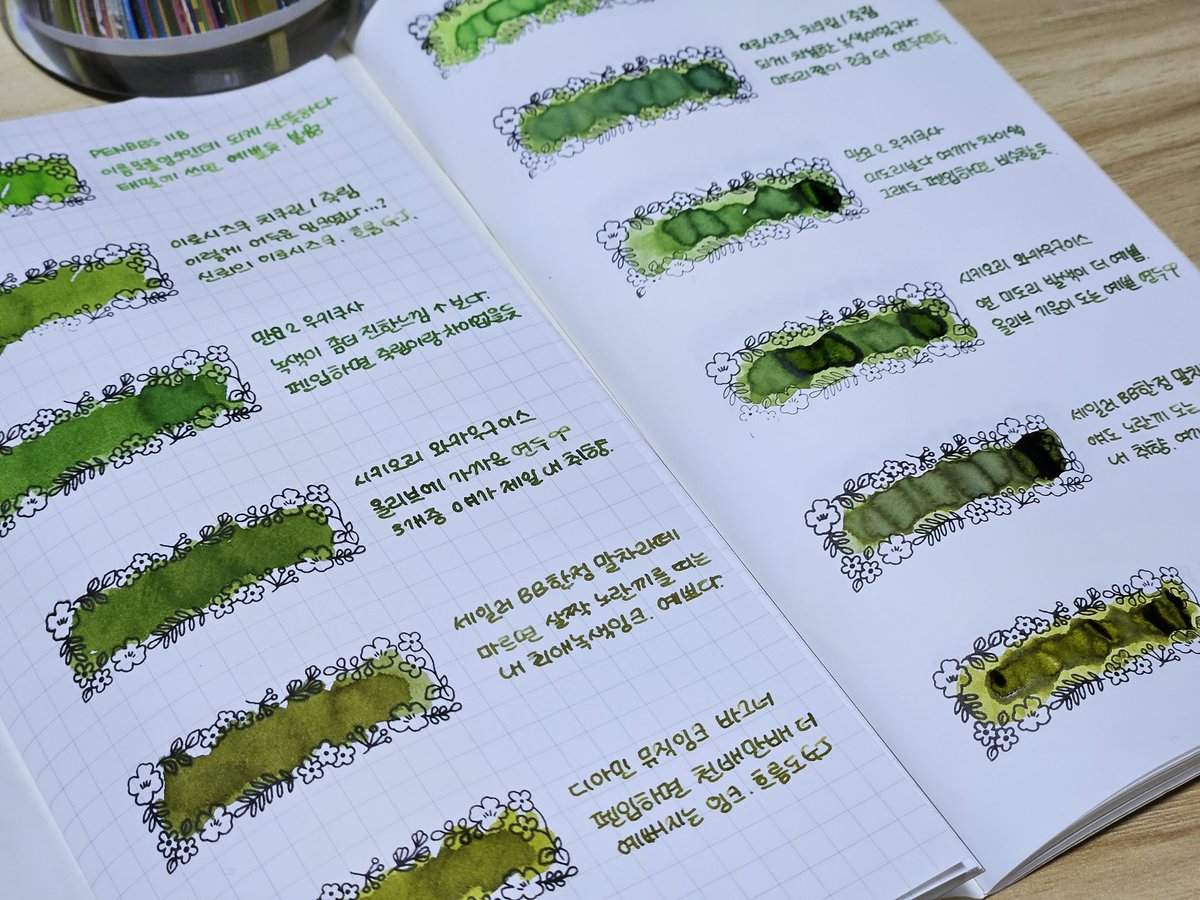 PENBBS 118
이름모를잉크인데 되게 산뜻하다
태필에 쓰면 예쁠듯. 봄용
이로시즈쿠 치쿠린 / 죽림
이렇게 어두운 잉크였나...?
신뢰의 이로시즈쿠. 흐름 GJ.
만요2 우키쿠사
녹색이 좀더 진한느낌 ↑ 보다.
펜입하면 죽림이랑 차이없을듯
시키오리 와카우구이스
올리브에 가까운 연두
3개중 얘가 제일 내 취향.
세일러 BB한정 말차라떼
마르면 살짝 노란끼를 띠는
내 최애녹색잉크. 예쁘다.
디아민 뮤직잉크 바그너
펜입하면 천배만배 더
예뻐지는 잉크. 흐름도 GJ
이로시즈쿠 치쿠린 / 죽림
되게 차분한 녹색이었구나
미도리쪽이 조금 더 연두연두.
만요2 우키쿠사
미도리보다 얘가 차이남
그래도 펜입하면 비슷할듯.
시키오리 와카우구이스
얜 미도리 발색이 더 예쁨.
올리브 기운이 도는 예쁜 연두
세일러 BB한정 말차
얘도 노란끼 도는
내 취향.